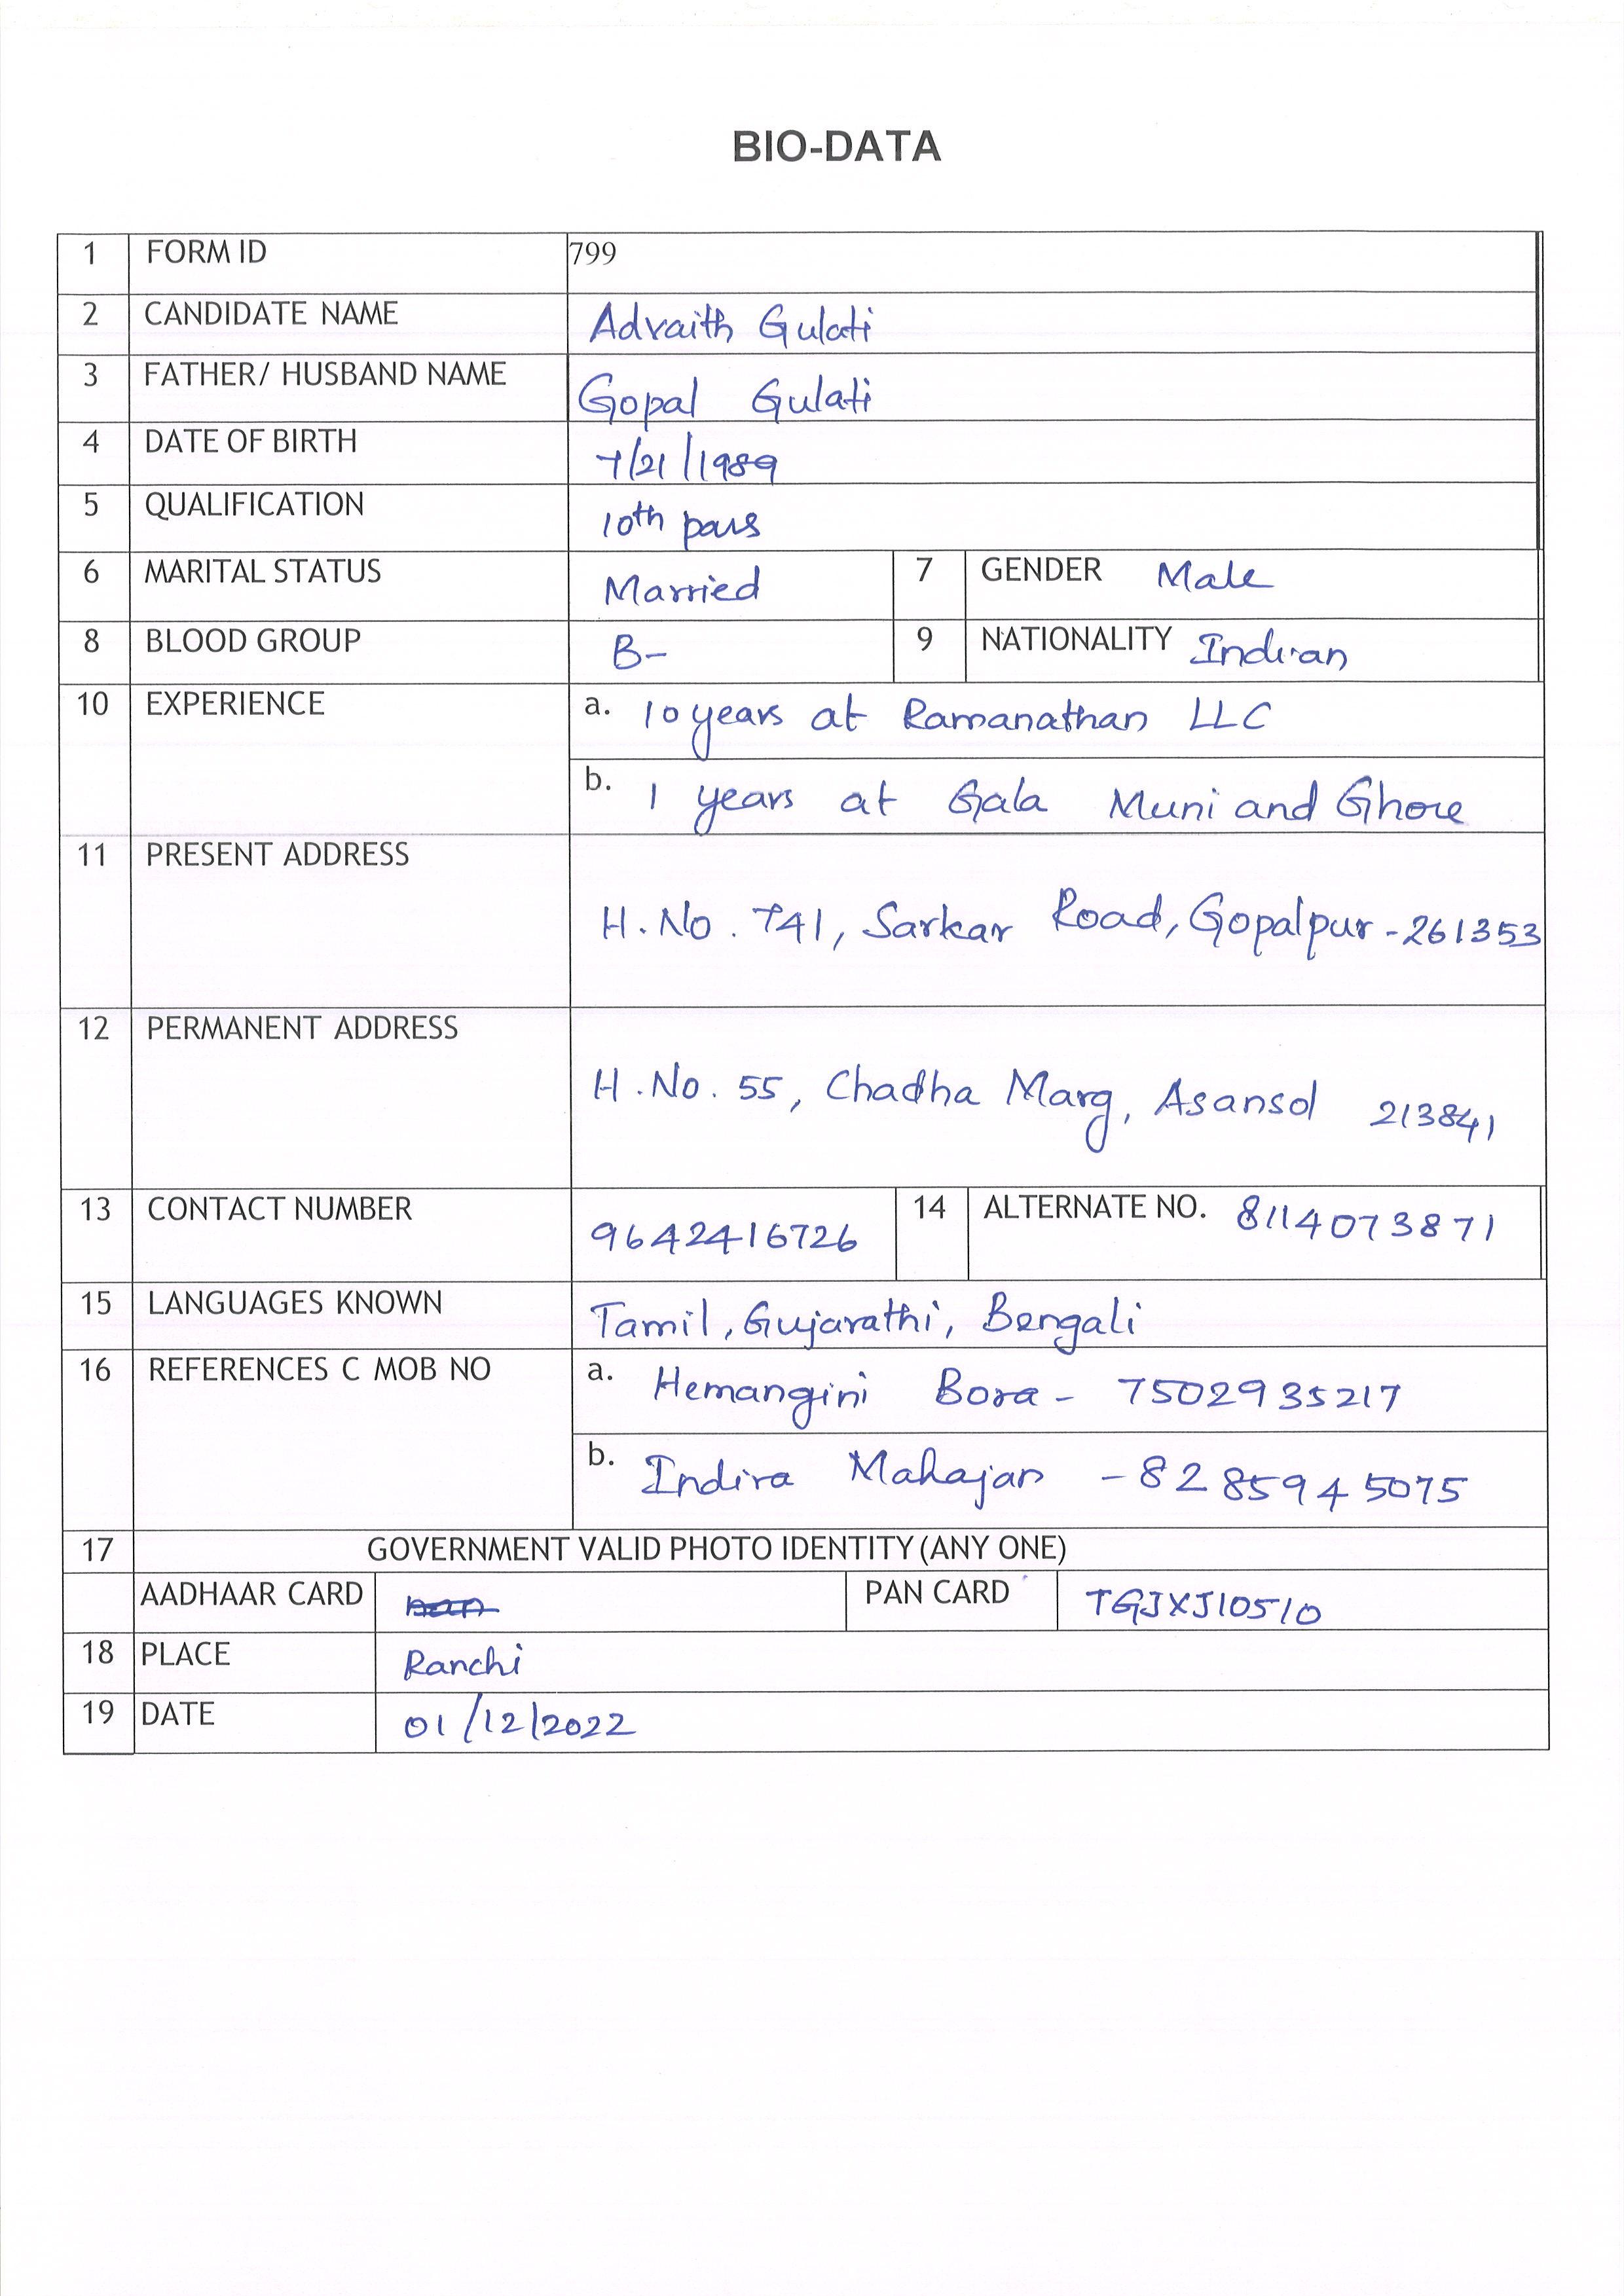 BIO-DATA
1 FORM ID 799
2 CANDIDATE NAME Advaith Gulati
3 FATHER/ HUSBAND NAME Gopal Gulati
4 DATE OF BIRTH 7/21/1989
5 QUALIFICATION 10th pass
6 MARITAL STATUS Married 7 GENDER Male
8 BLOOD GROUP B- 9 NATIONALITY Indian
10 EXPERIENCE a. 10 years at Ramanathan LLC
b. 1 years at Gala Muni and Ghore
11 PRESENT ADDRESS
H.No. 741, Sarkar Road, Gopalpur - 261353
12 PERMANENT ADDRESS
H.No. 55, Chadha Marg, Asansol 213841
13 CONTACT NUMBER 9642416726 14 ALTERNATE NO. 8114073871
15 LANGUAGES KNOWN Tamil, Gujarathi, Bengali
16 REFERENCES C MOB NO a. Hemangini Bora - 7502935217
b. Indira Mahajan - 8285945075
17 GOVERNMENT VALID PHOTO IDENTITY (ANY ONE)
AADHAAR CARD PAN CARD TGJXJ10510
18 PLACE Ranchi
19 DATE 01/12/2022